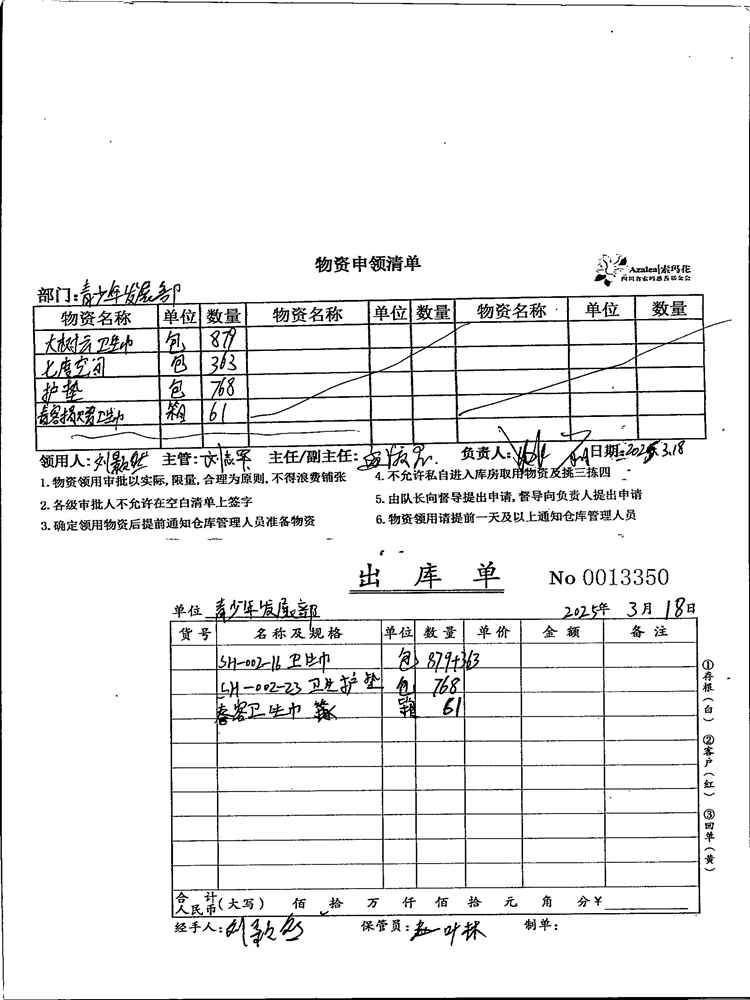 物资申领清单
Azalea|索玛花
四川省索玛慈善基金会
部门:青少年发展部
物资名称 单位 数量 物资名称 单位 数量 物资名称 单位 数量
大树云卫生巾 包 879
七度空间 包 363
护垫 包 768
春客 卫生巾 箱 61
领用人: 主管: 主任/副主任: 负责人: 日期:2025.3.18
1.物资领用审批以实际,限量,合理为原则,不得浪费铺张
2.各级审批人不允许在空白清单上签字
3.确定领用物资后提前通知仓库管理人员准备物资
4.不允许私自进入库房取用物资及挑三拣四
5.由队长向督导提出申请,督导向负责人提出申请
6.物资领用请提前一天及以上通知仓库管理人员
出库单 No 0013350
单位 青少年发展部 2025年 3月 18日
货号 名称及规格 单位 数量 单价 金额 备注
SH-002-16 卫生巾 包 879+363
SH-002-23 卫生护垫 包 768
春客卫生巾 箱 61
①存根(白) ②客户(红) ③回单(黄)
合计人民币(大写) 佰 拾 万 仟 佰 拾 元 角 分¥
经手人: 保管员: 叶林 制单: